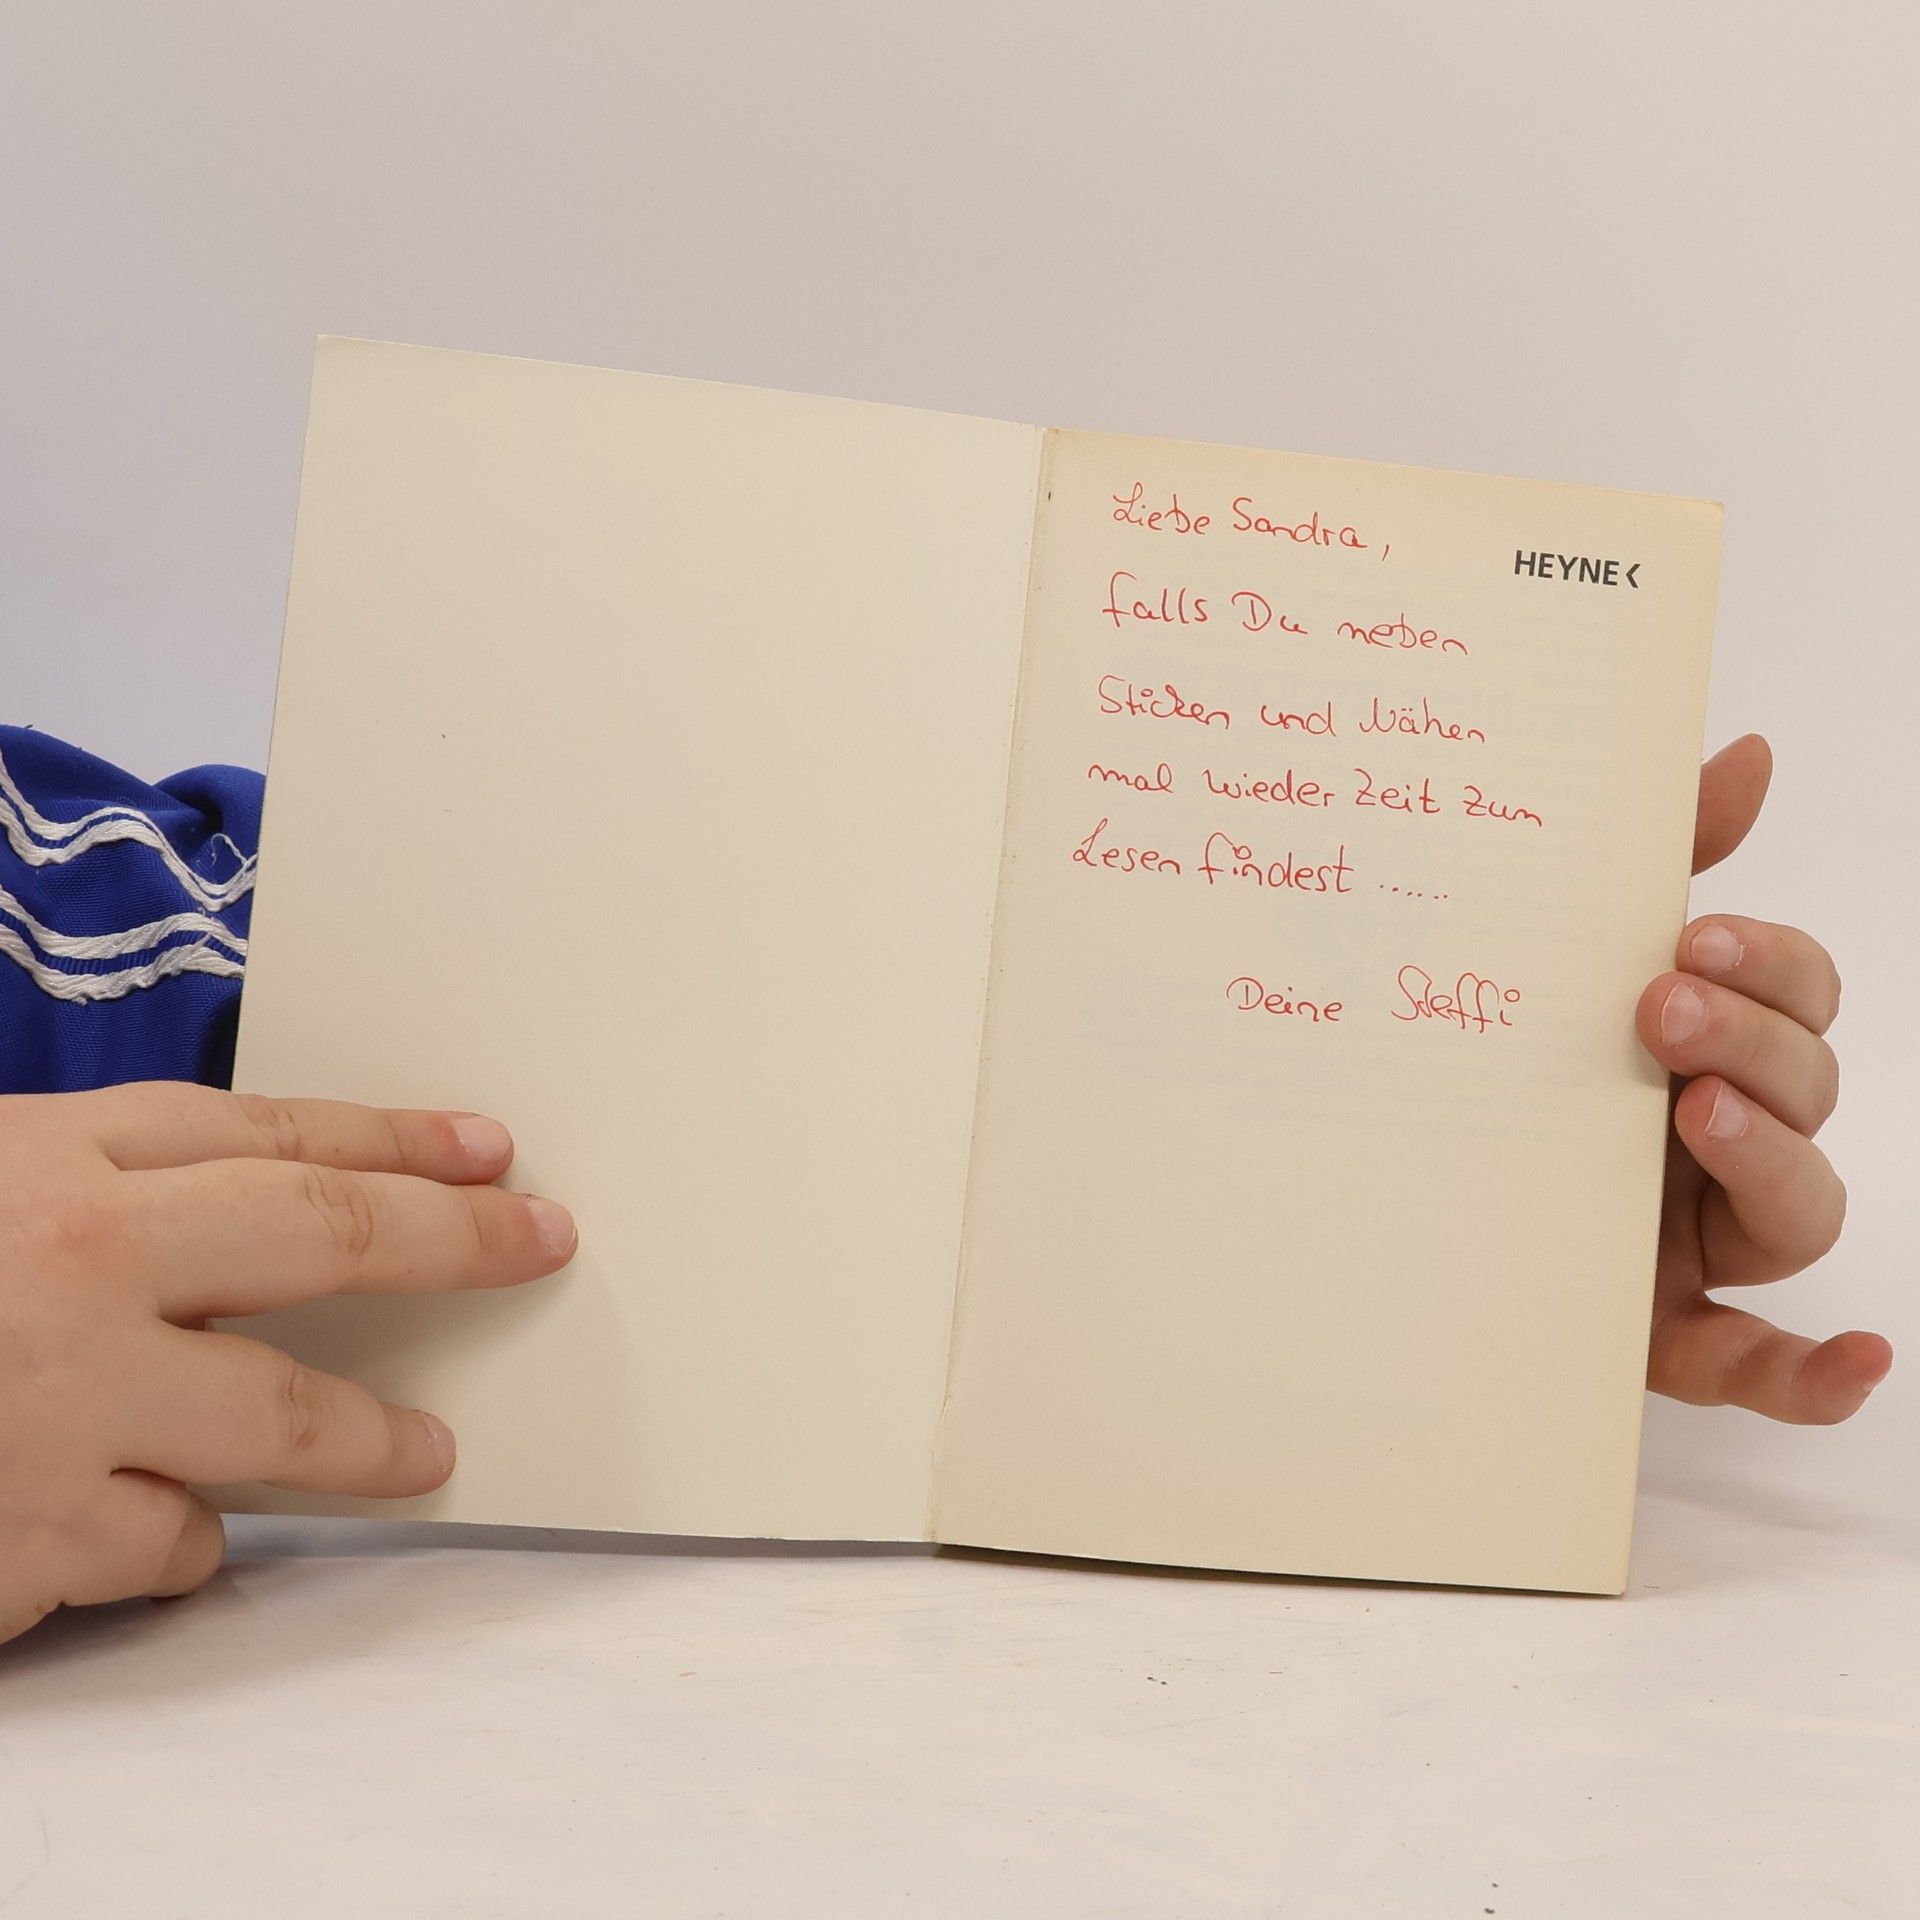 Liebe Sandra,
HEYNE<
falls Du neben
Sticken und Nähen
mal wieder Zeit zum
Lesen findest ......
Deine Steffi